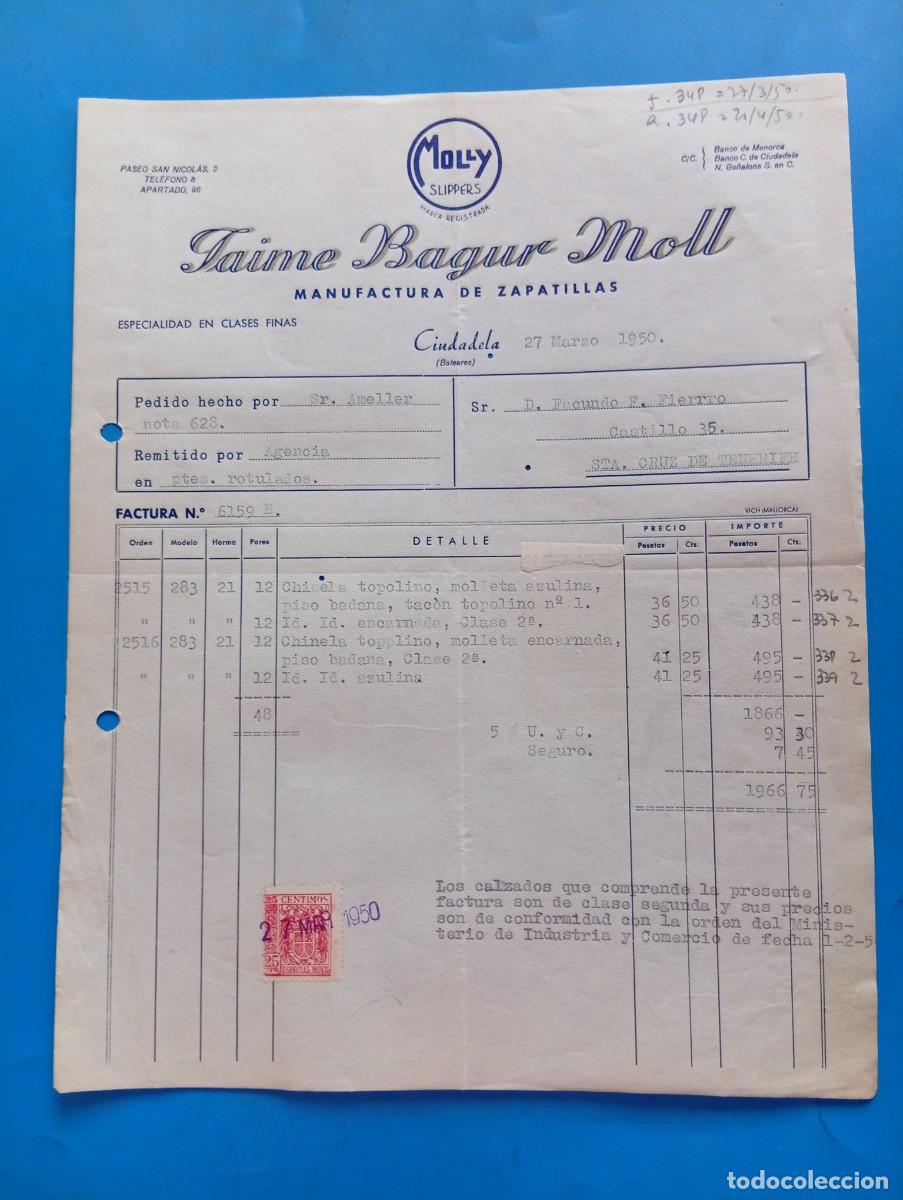 f. 348 = 27/3/50.
a. 348 = 21/4/50.
PASEO SAN NICOLÁS, 2
TELÉFONO 8
APARTADO, 96
MOLLY
SLIPPERS
MARCA REGISTRADA
C/C. { Banco de Menorca
Banco C. de Ciudadela
N. Goñalons S. en C.
Jaime Bagur Moll
MANUFACTURA DE ZAPATILLAS
ESPECIALIDAD EN CLASES FINAS
Ciudadela 27 Marzo 1950.
(Baleares)
Pedido hecho por Sr. Ameller
nota 628.
Remitido por Agencia
en ptes. rotulados.
Sr. D. Facundo F. Fierrro
Castillo 35.
STA. CRUZ DE TENERIFE
FACTURA N.º 6159 B.
VICH (MALLORCA)
Orden Modelo Horma Pares DETALLE PRECIO IMPORTE
Pesetas Cts. Pesetas Cts.
2515 283 21 12 Chinela topolino, molleta azulina,
piso badana, tacòn topolino nº 1. 36 50 438 - 336 2
" " " 12 Id. Id. encarnada, Clase 2ª. 36 50 438 - 337 2
2516 283 21 12 Chinela topolino, molleta encarnada,
piso badana, Clase 2ª. 41 25 495 - 338 2
" " " 12 Id. Id. azulina 41 25 495 - 339 2
48 1866 -
5 % U. y C. 93 30
Seguro. 7 45
1966 75
Los calzados que comprende la presente
factura son de clase segunda y sus precios
son de conformidad con la orden del Minis-
terio de Industria y Comercio de fecha 1-2-5
25 CENTIMOS 25
27 MAR 1950
25 ESPECIAL MOVIL
todocoleccion